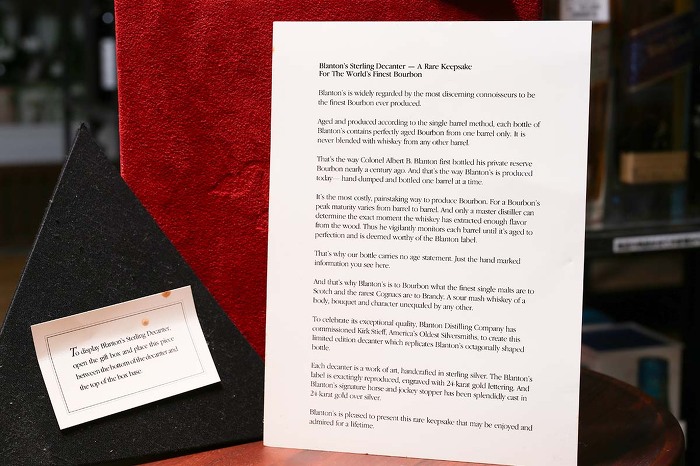 Blanton's Sterling Decanter — A Rare Keepsake
For The World's Finest Bourbon
Blanton's is widely regarded by the most discerning connoisseurs to be
the finest Bourbon ever produced.
Aged and produced according to the single barrel method, each bottle of
Blanton's contains perfectly aged Bourbon from one barrel only. It is
never blended with whiskey from any other barrel.
That's the way Colonel Albert B. Blanton first bottled his private reserve
Bourbon nearly a century ago. And that's the way Blanton's is produced
today—hand dumped and bottled one barrel at a time.
It's the most costly, painstaking way to produce Bourbon. For a Bourbon's
peak maturity varies from barrel to barrel. And only a master distiller can
determine the exact moment the whiskey has extracted enough flavor
from the wood. Thus he vigilantly monitors each barrel until it's aged to
perfection and is deemed worthy of the Blanton label.
That's why our bottle carries no age statement. Just the hand marked
information you see here.
And that's why Blanton's is to Bourbon what the finest single malts are to
Scotch and the rarest Cognacs are to Brandy. A sour mash whiskey of a
body, bouquet and character unequaled by any other.
To celebrate its exceptional quality, Blanton Distilling Company has
commissioned Kirk Stieff, America's Oldest Silversmiths, to create this
limited edition decanter which replicates Blanton's octagonally shaped
bottle.
Each decanter is a work of art, handcrafted in sterling silver. The Blanton's
label is exactingly reproduced, engraved with 24-karat gold lettering. And
Blanton's signature horse and jockey stopper has been splendidly cast in
24-karat gold over silver.
Blanton's is pleased to present this rare keepsake that may be enjoyed and
admired for a lifetime.
To display Blanton's Sterling Decanter,
open the gift box and place this piece
between the bottom of the decanter and
the top of the box base.